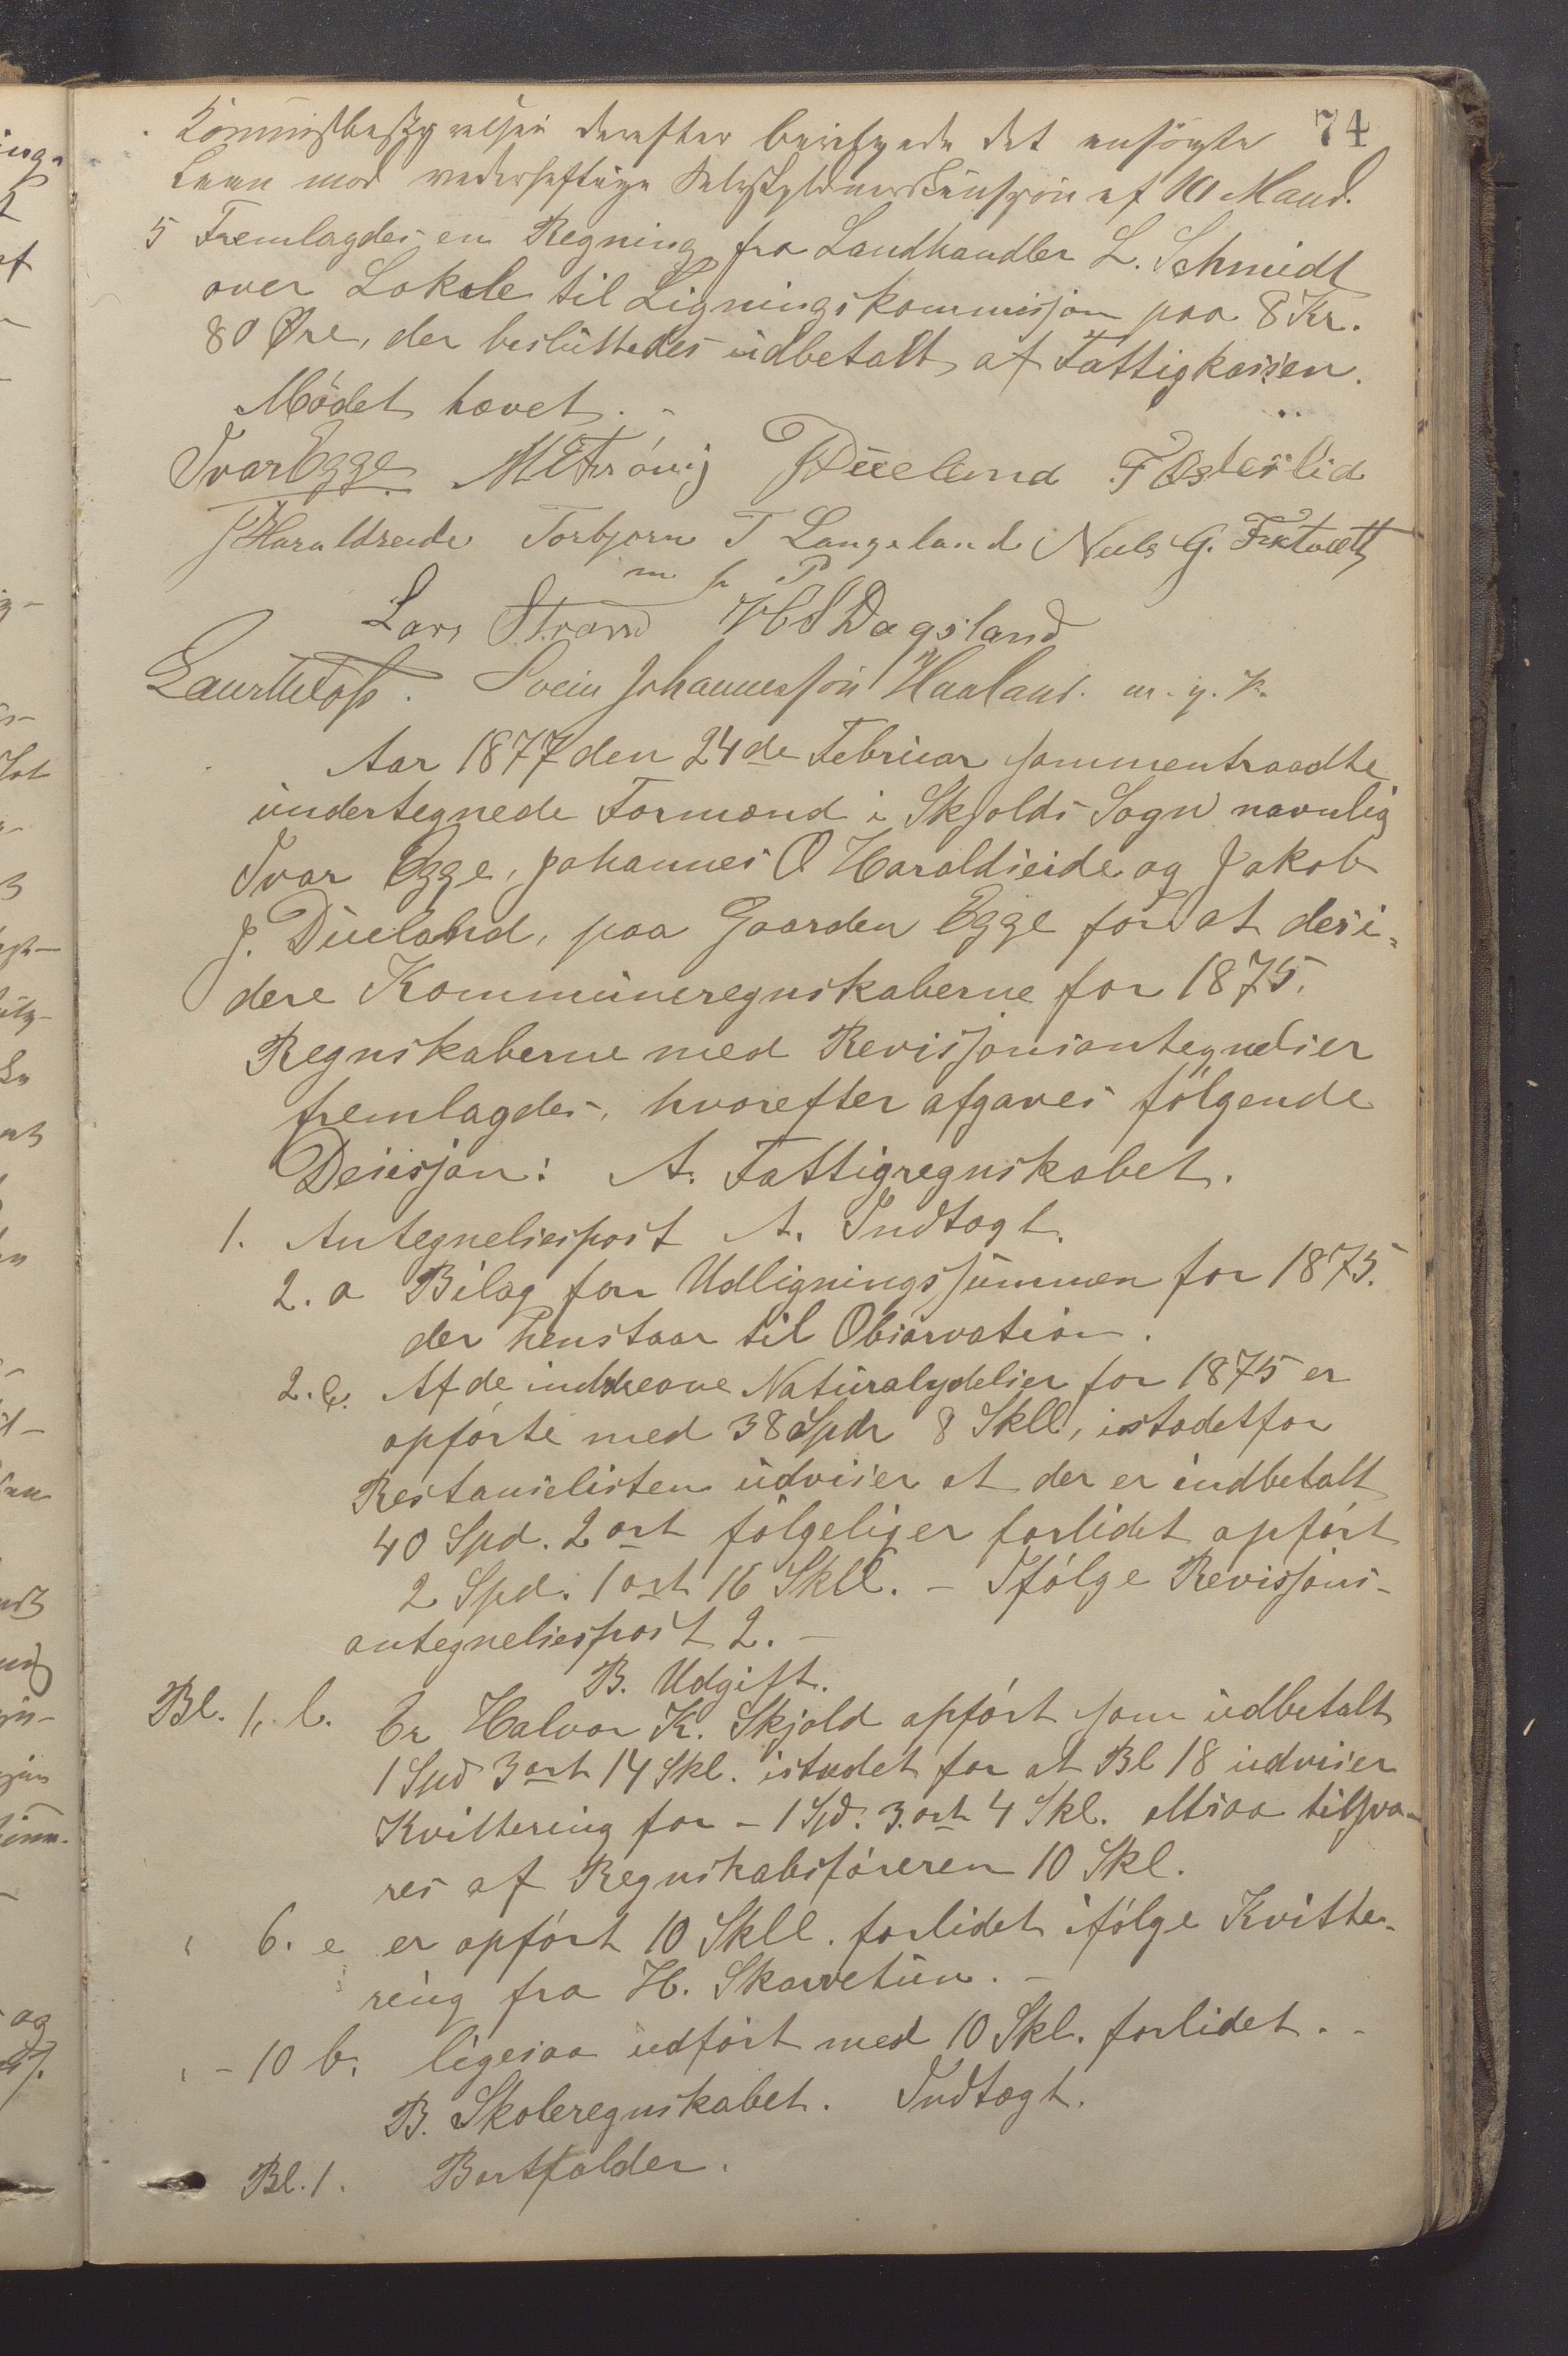 74
Kommunbestyrelsen derefter bevilgede det ansøgte
Laan mod vederheftige Selvskyldnerkaution af 10 Mand.
5 Fremlagdes en Regning fra Landhandler L. Schmidt
over Lokale til Ligningskommisjon paa 8 Kr.
80 Øre, der besluttedes udbetalt af Fattigkassen.
Mödet hævet. -
Ivar Egge J Dueland F Østeslid
J Haraldseide Torbjørn T Langeland Neels G.
m p P
Lars Strand Dagsland
Svein Johannessön Haaland.
Aar 1877 den 24de Februar sammentraadte
undertegnede Formænd i Skjolds Sogn navnlig
Ivar Egge, Johannes O Haraldseide og Jakob
J. Dueland, paa Gaarden Egge for at desi-
dere Kommuneregnskaberne for 1875.
Regnskaberne med Revisjonsantegnelser
fremlagdes, hvorefter afgaves fölgende
Desisjon: A. Fattigregnskabet.
1. Antegnelsespost A. Indtægt.
2. a Bilag for Udligningssummen for 1875.
der henstaar til Observation.
2. e. Af de inddrevne Naturalydelser for 1875 er
opförte med 38 Spdr 8 Skll, istedetfor
Restanselisten udviser at der er indbetalt
40 Spd. 2 ort fölgelig er forlidet opfört
2 Spd. 1 ort 16 Skll. - Ifölge Revisjons-
antegnelsespost 2. -
B. Udgift.
Bl. 1. b. Er Halvor K. Skjold opfört som udbetalt
1 Spd 3 ort 14 Skl. istedet for at Bl 18 udviser
Kvittering for - 1 Spd. 3. ort 4 Skl. altsaa tilsva-
res af Regnskabsföreren 10 Skl.
6. e er opfört 10 Skll. forlidet ifölge Kvitte-
ring fra H. Skarvetun. -
- 10 b. ligesaa udfört med 10 Skl. forlidet. -
B. Skoleregnskabet. Indtægt.
Bl. 1. Bortfalder.